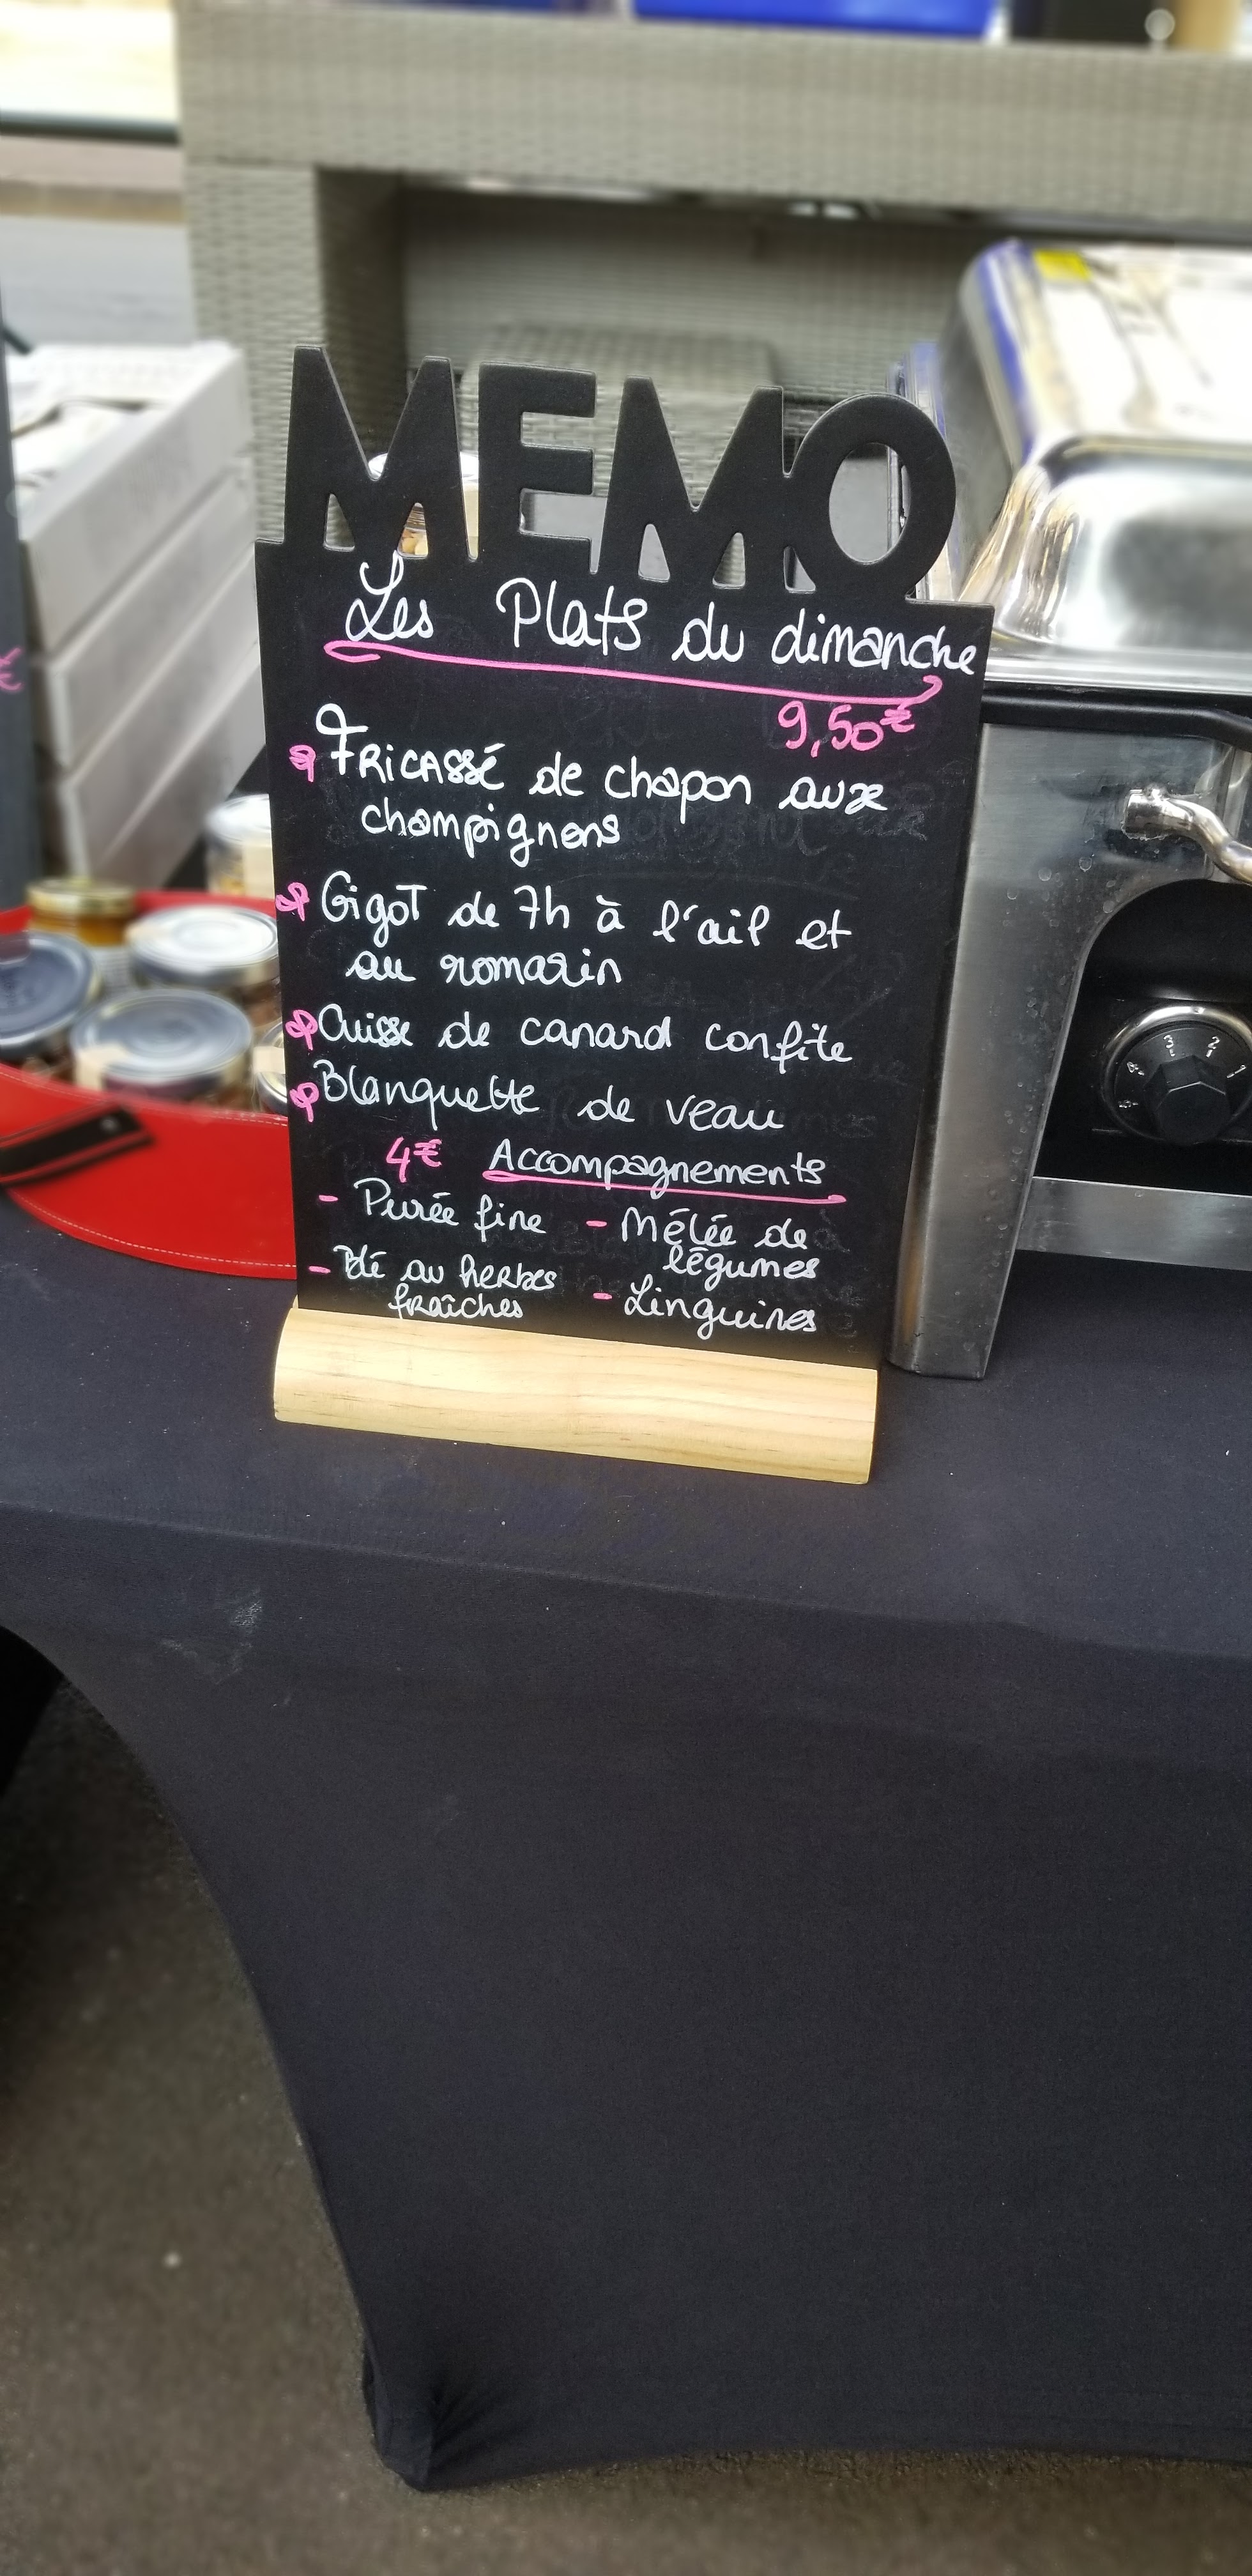 MEMO
Les Plats du dimanche
9,50€
Fricassé de chapon aux
champignons
Gigot de 7h à l'ail et
au romarin
Cuisse de canard confite
Blanquette de veau
4€ Accompagnements
- Purée fine
- Blé au herbes
fraîches
- Mélée de
légumes
- Linguines
€
4 3 2 1